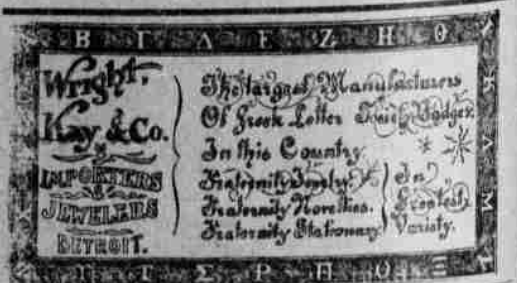 Β Γ Δ Ε Ζ Η Θ
Wright,
Kay & Co.
IMPORTERS
&
JEWELERS
DETROIT.
The Largest Manufacturers
Of Greek Letter Badges
In this Country.
Fraternity Jewelry.
Fraternity Novelties.
Fraternity Stationary.
In
Greatest
Variety.
Κ Λ Μ
Τ Σ Ρ Π Ο Ξ